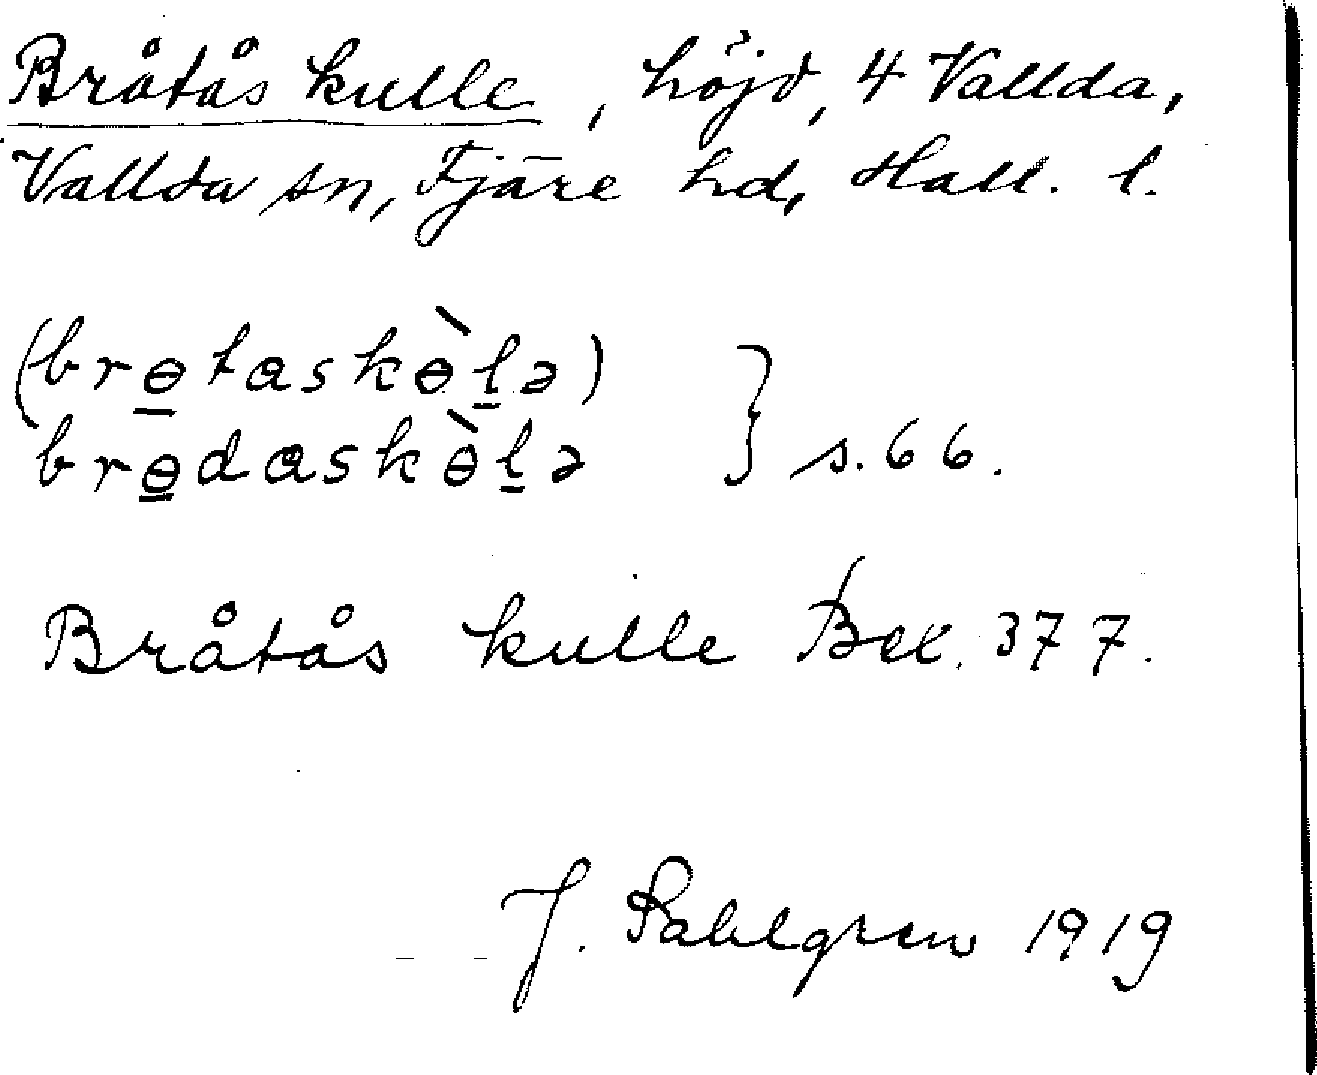 Bråtås kulle, höjd, 4 Vallda,
Vallda sn, Fjäre hd, Hall. l.
(brɵtaskɵ̀lə)
brɵdaskɵ̀lə } s. 66.
Bråtås kulle Bex. 377.
J. Sahlgren 1919